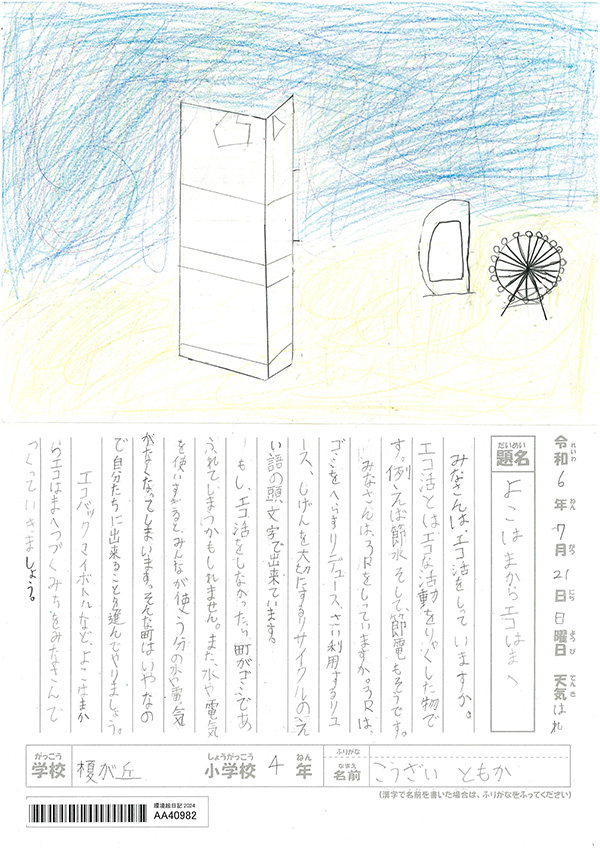 令和6年7月21日日曜日 天気はれ
れいわ ねん がつ にち ようび てんき
だいめい
題名 よこはまからエコはまへ
みなさんはエコ活をしっていますか。
エコ活とはエコな活動をりゃくした物で
す。例えば節水そして、節電もそうです。
みなさんは、3Rをしっていますか。3Rは、
ゴミをへらすリデュース、さい利用するリユ
ース、しげんを大切にするリサイクルのえ
い語の頭文字で出来ています。
もし、エコ活をしなかったら、町がゴミであ
ふれてしまうかもしれません。また、水や電気
を使いすぎるとみんなが使う分の水や電気
がなくなってしまいます。そんな町はいやなの
で自分たちに出来ることを進んでやりましょう。
エコバックマイボトルなど、よこはまか
らエコはまへつづくみちをみなさんで
つくっていきましょう。
がっこう しょうがっこう ねん ふりがな
学校 榎が丘 小学校 4年 なまえ 名前 こうざい ともか
(漢字で名前を書いた場合は、ふりがなをふってください)
環境絵日記2024
AA40982